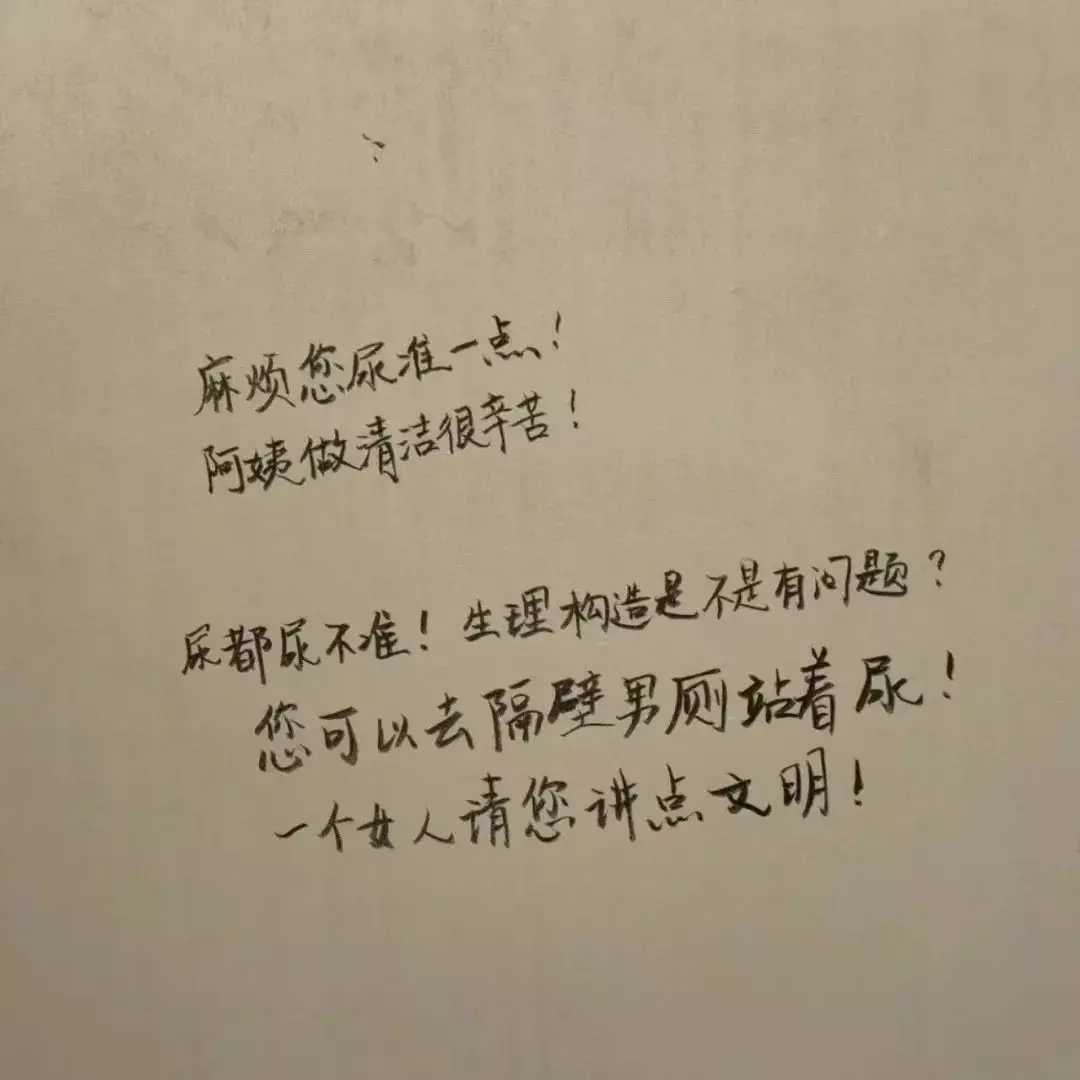 麻烦您尿准一点!
阿姨做清洁很辛苦!
尿都尿不准!生理构造是不是有问题?
您可以去隔壁男厕站着尿!
一个女人请您讲点文明!